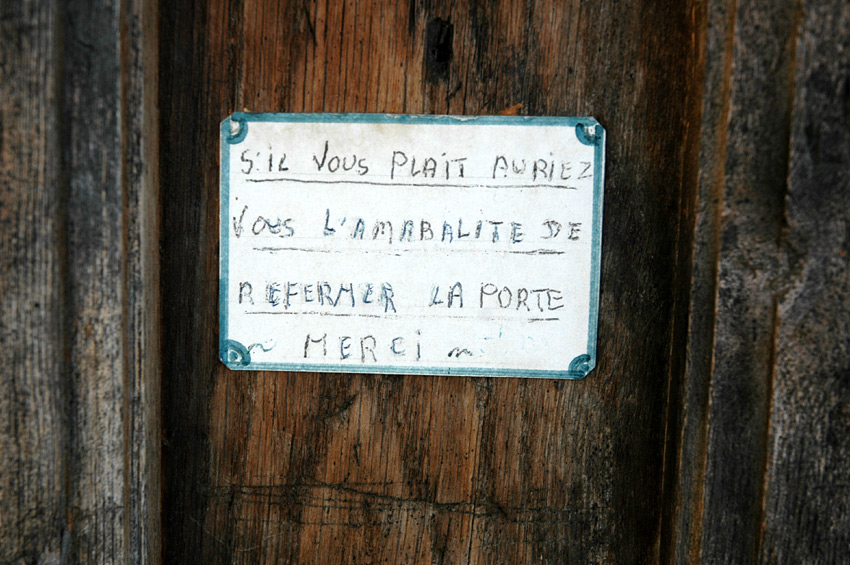 S'IL VOUS PLAÎT AURIEZ
VOUS L'AMABALITE DE
REFERMER LA PORTE
~ MERCI ~